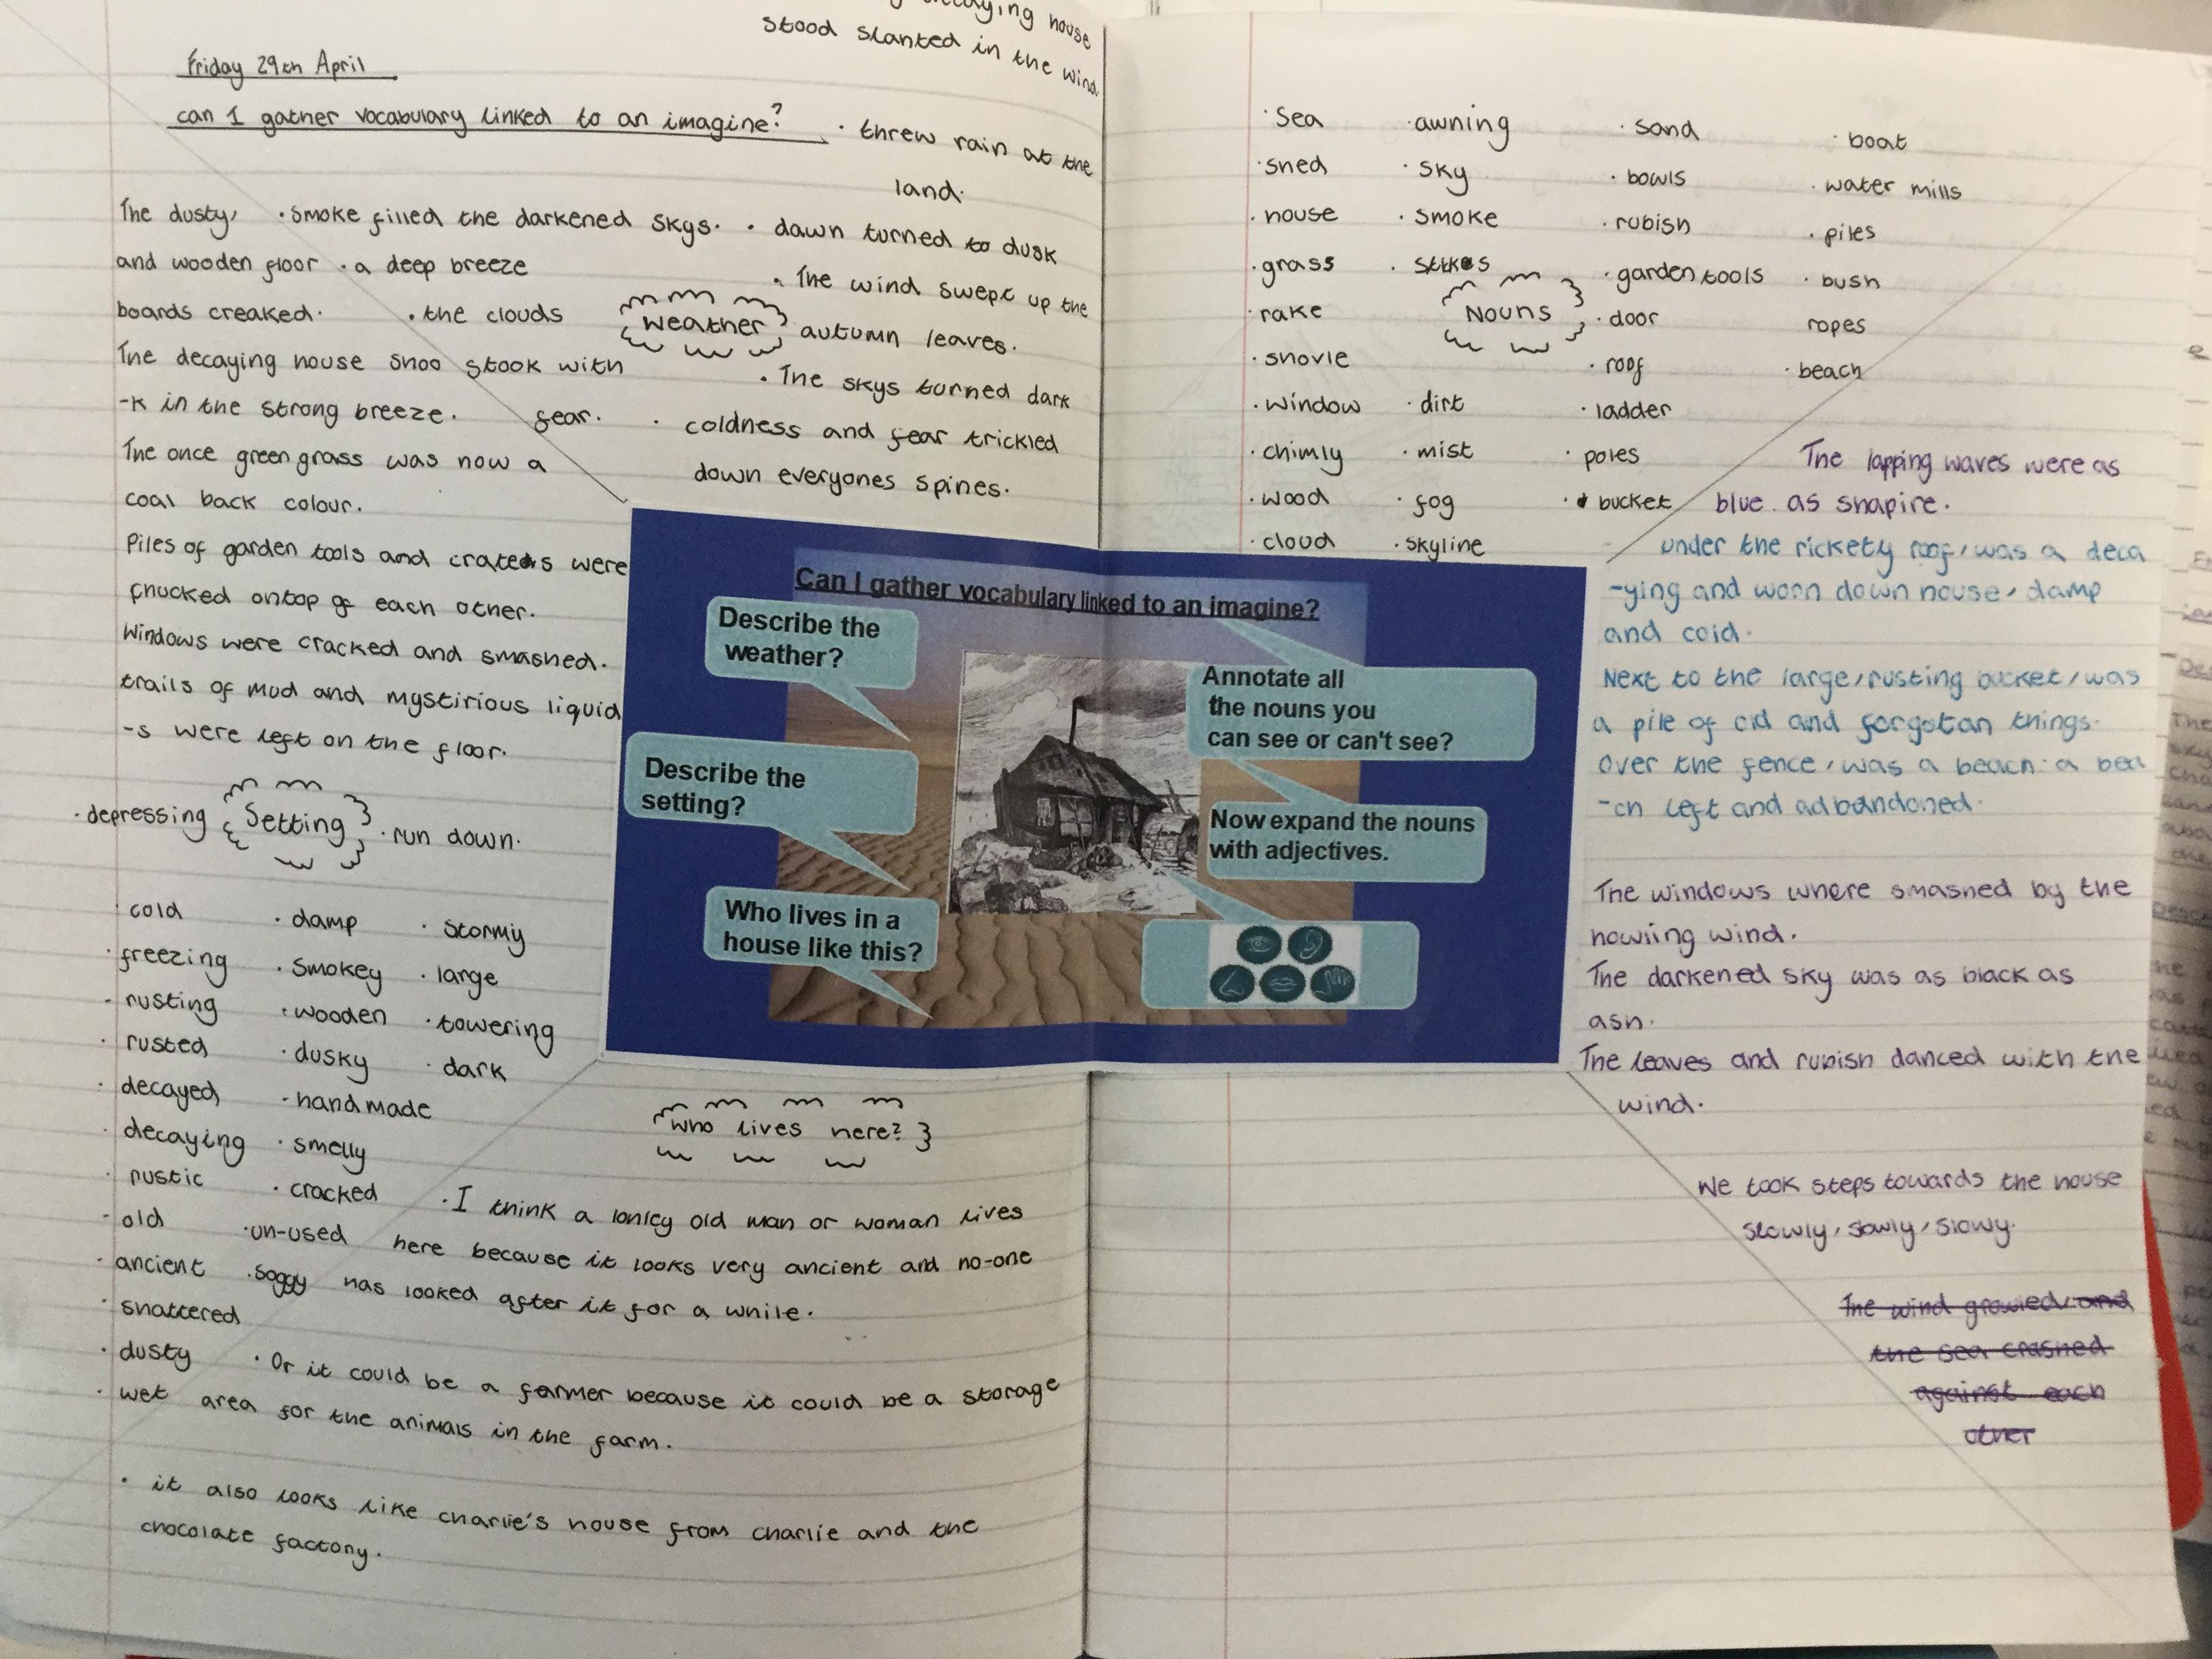 Friday 29th April
can I gather vocabulary linked to an imagine?
decaying house
stood slanted in the wind.
· threw rain at the
land.
· smoke filled the darkened skys.
· dawn turned to dusk
· a deep breeze
· The wind swept up the
autumn leaves.
· the clouds
shook with
fear.
weather
· The skys turned dark
· coldness and fear trickled
down everyones spines.
The dusty,
and wooden floor
boards creaked.
The decaying house shoo
-k in the strong breeze.
The once green grass was now a
coal back colour.
Piles of garden tools and crates were
chucked ontop of each other.
Windows were cracked and smashed.
trails of mud and mystirious liquid
-s were left on the floor.
· depressing
Setting
· run down.
cold
· freezing
· rusting
· rusted
· decayed
· decaying
· rustic
· old
· ancient
· shattered
· dusty
· wet
· damp
· smokey
· wooden
· dusky
· handmade
· smelly
· cracked
· un-used
· soggy
· stormy
· large
· towering
· dark
who lives here?
· I think a lonley old man or woman lives
here because it looks very ancient and no-one
has looked after it for a while.
· Or it could be a farmer because it could be a storage
area for the animals in the farm.
· it also looks like charlie's house from charlie and the
chocolate factory.
Can I gather vocabulary linked to an imagine?
Describe the
weather?
Describe the
setting?
Who lives in a
house like this?
Annotate all
the nouns you
can see or can't see?
Now expand the nouns
with adjectives.
· sea
· shed
· house
· grass
· rake
· shovle
· window
· chimly
· wood
· cloud
· awning
· sky
· smoke
Nouns
· dirt
· mist
· fog
· skyline
· sand
· bowls
· rubish
· garden tools
· door
· roof
· ladder
· poles
· bucket
· boat
· water mills
· piles
· bush
ropes
· beach
The lapping waves were as
blue as shapire.
under the rickety roof, was a deca
-ying and worn down house, damp
and cold.
Next to the large, rusting bucket, was
a pile of old and forgotan things.
Over the fence, was a beach. a bea
-ch left and adbandoned.
The windows where smashed by the
howling wind.
The darkened sky was as black as
ash.
The leaves and rubish danced with the
wind.
We took steps towards the house
slowly, slowly, slowy.
The wind growled, and
the sea crashed
against each
other